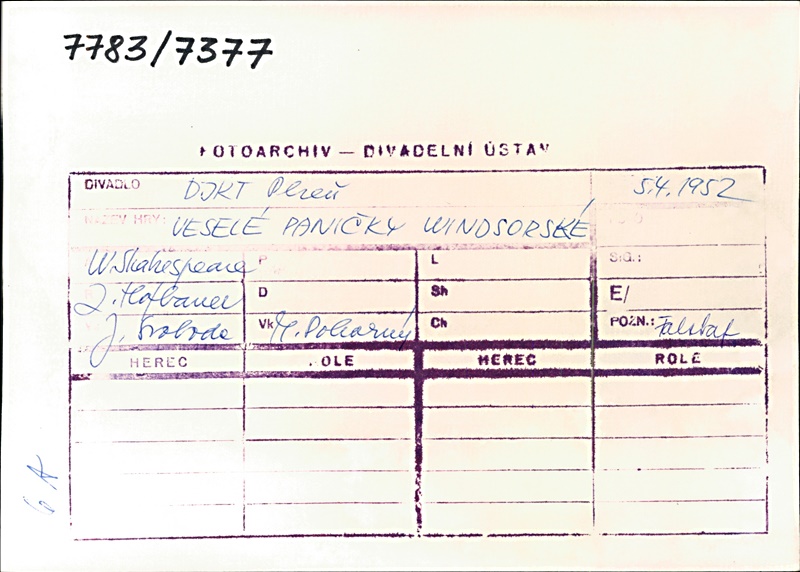 7783/7377
FOTOARCHIV — DIVADELNÍ ÚSTAV
DIVADLO DJKT Plzeň 5.4.1952
NÁZEV HRY: VESELÉ PANIČKY WINDSORSKÉ
W. Shakespeare P L SIG.:
J. Hofbauer D Sh E/
J. Svoboda Vk M. Pokorný Ch POZN.: Falstaf
HEREC ROLE HEREC ROLE
6 A